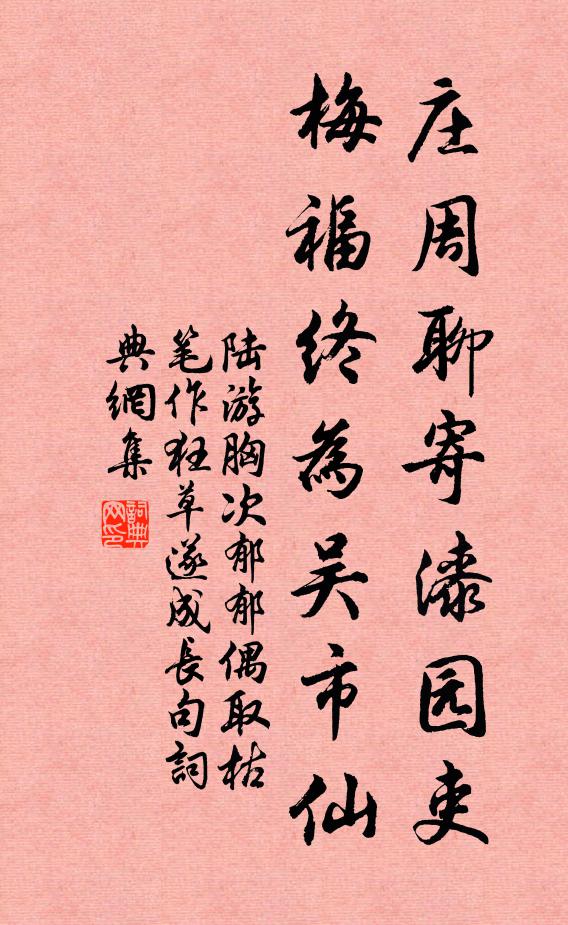 庄周聊寄漆园吏
梅福终為吴市仙
陆游胸次郁郁偶取枯
笔作狂草遂成長句詞
典網集
詞典
网印